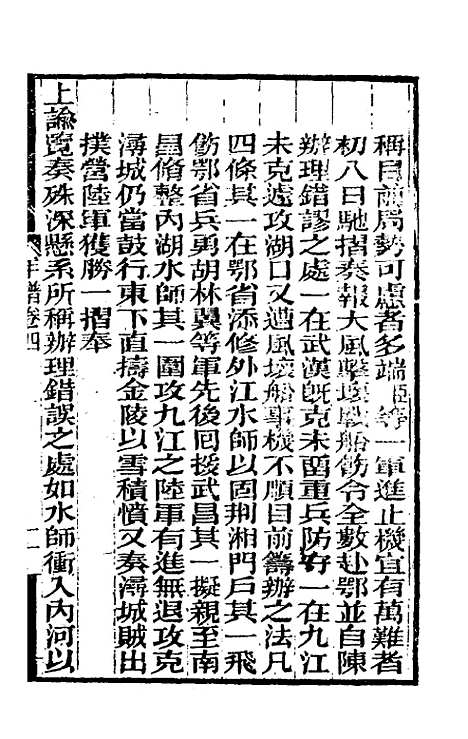 稱目前局勢可慮者多端臣等一軍進止機宜有萬難者
初八日馳摺奏報大風擊壞戰船飭令全數赴鄂並自陳
辦理錯謬之處一在武漢既克未留重兵防守一在九江
未克遽攻湖口又遭風壞船事機不順目前籌辦之法凡
四條其一在鄂省添修外江水師以固荆湘門戶其一飛
飭鄂省兵勇胡林翼等軍先後囘援武昌其一擬親至南
昌脩整內湖水師其一圍攻九江之陸軍有進無退攻克
潯城仍當鼓行東下直擣金陵以雪積憤又奏潯城賊出
撲營陸軍獲勝一摺奉
上諭覽奏殊深懸系所稱辦理錯誤之處如水師衝入內河以
年譜卷四